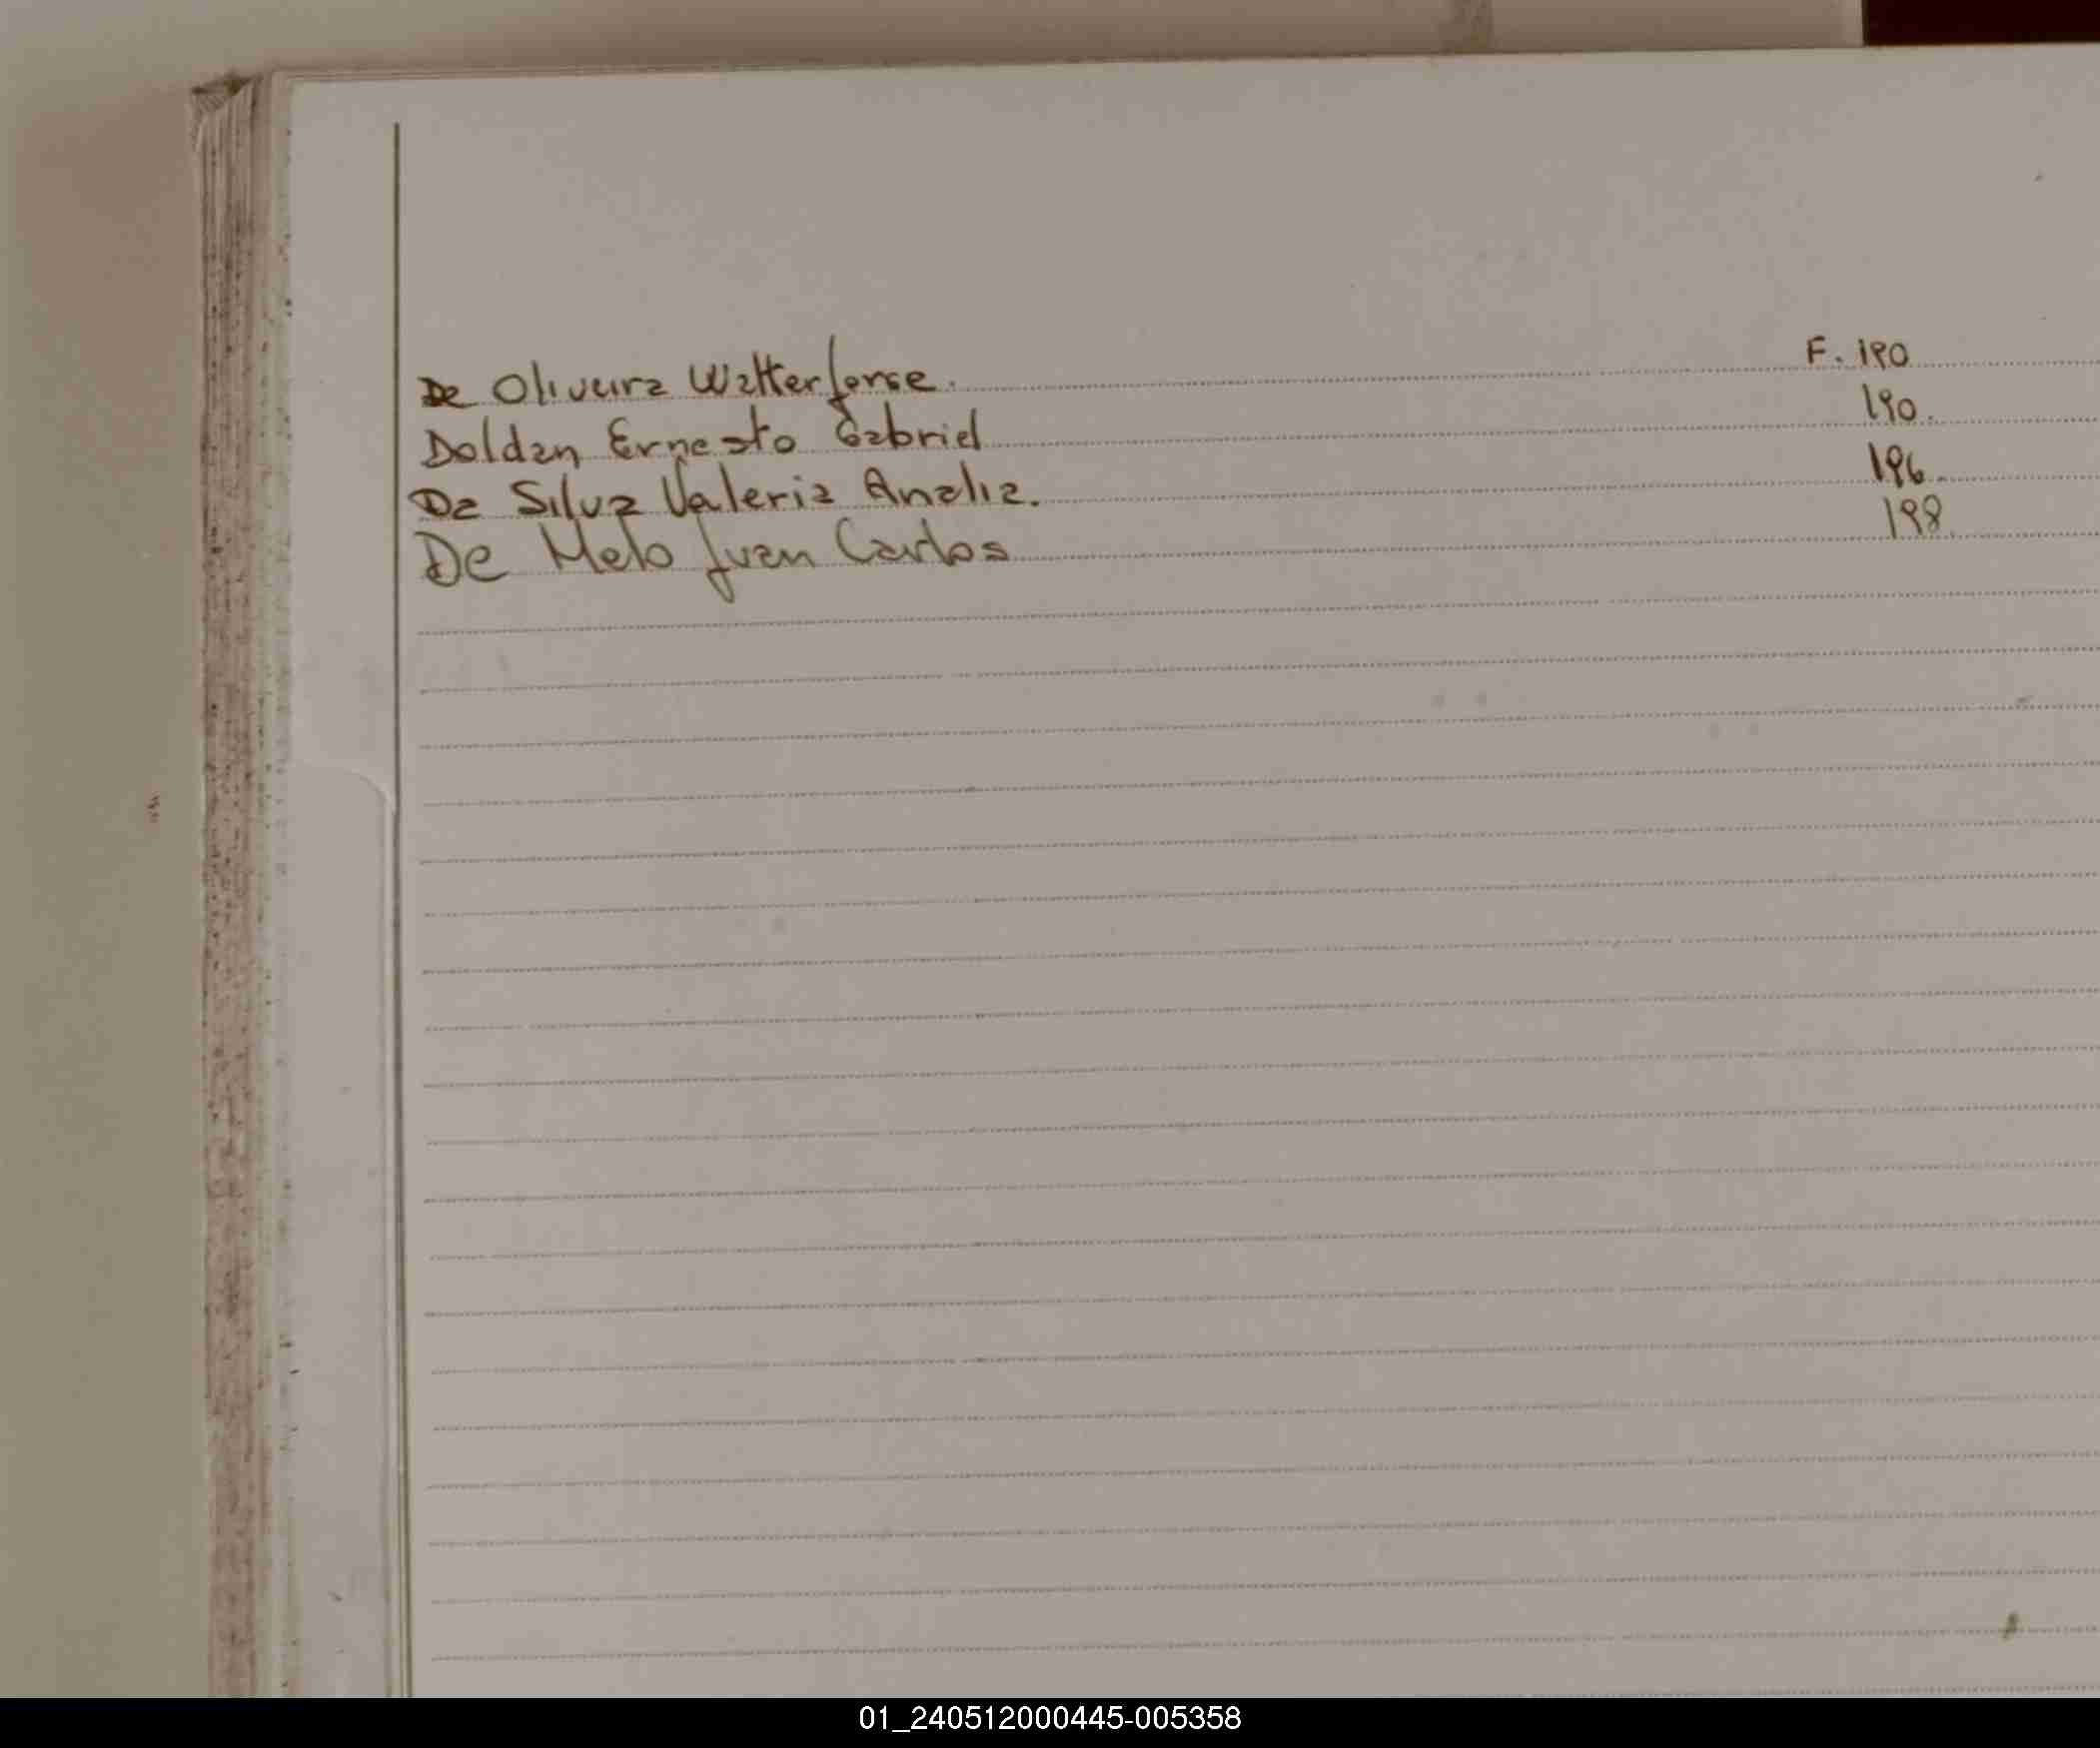 De Oliveira Walter Jorge. F. 190
Doldan Ernesto Gabriel 190.
Da Silva Valeria Analia. 196.
De Melo Juan Carlos 198.
01_240512000445-005358